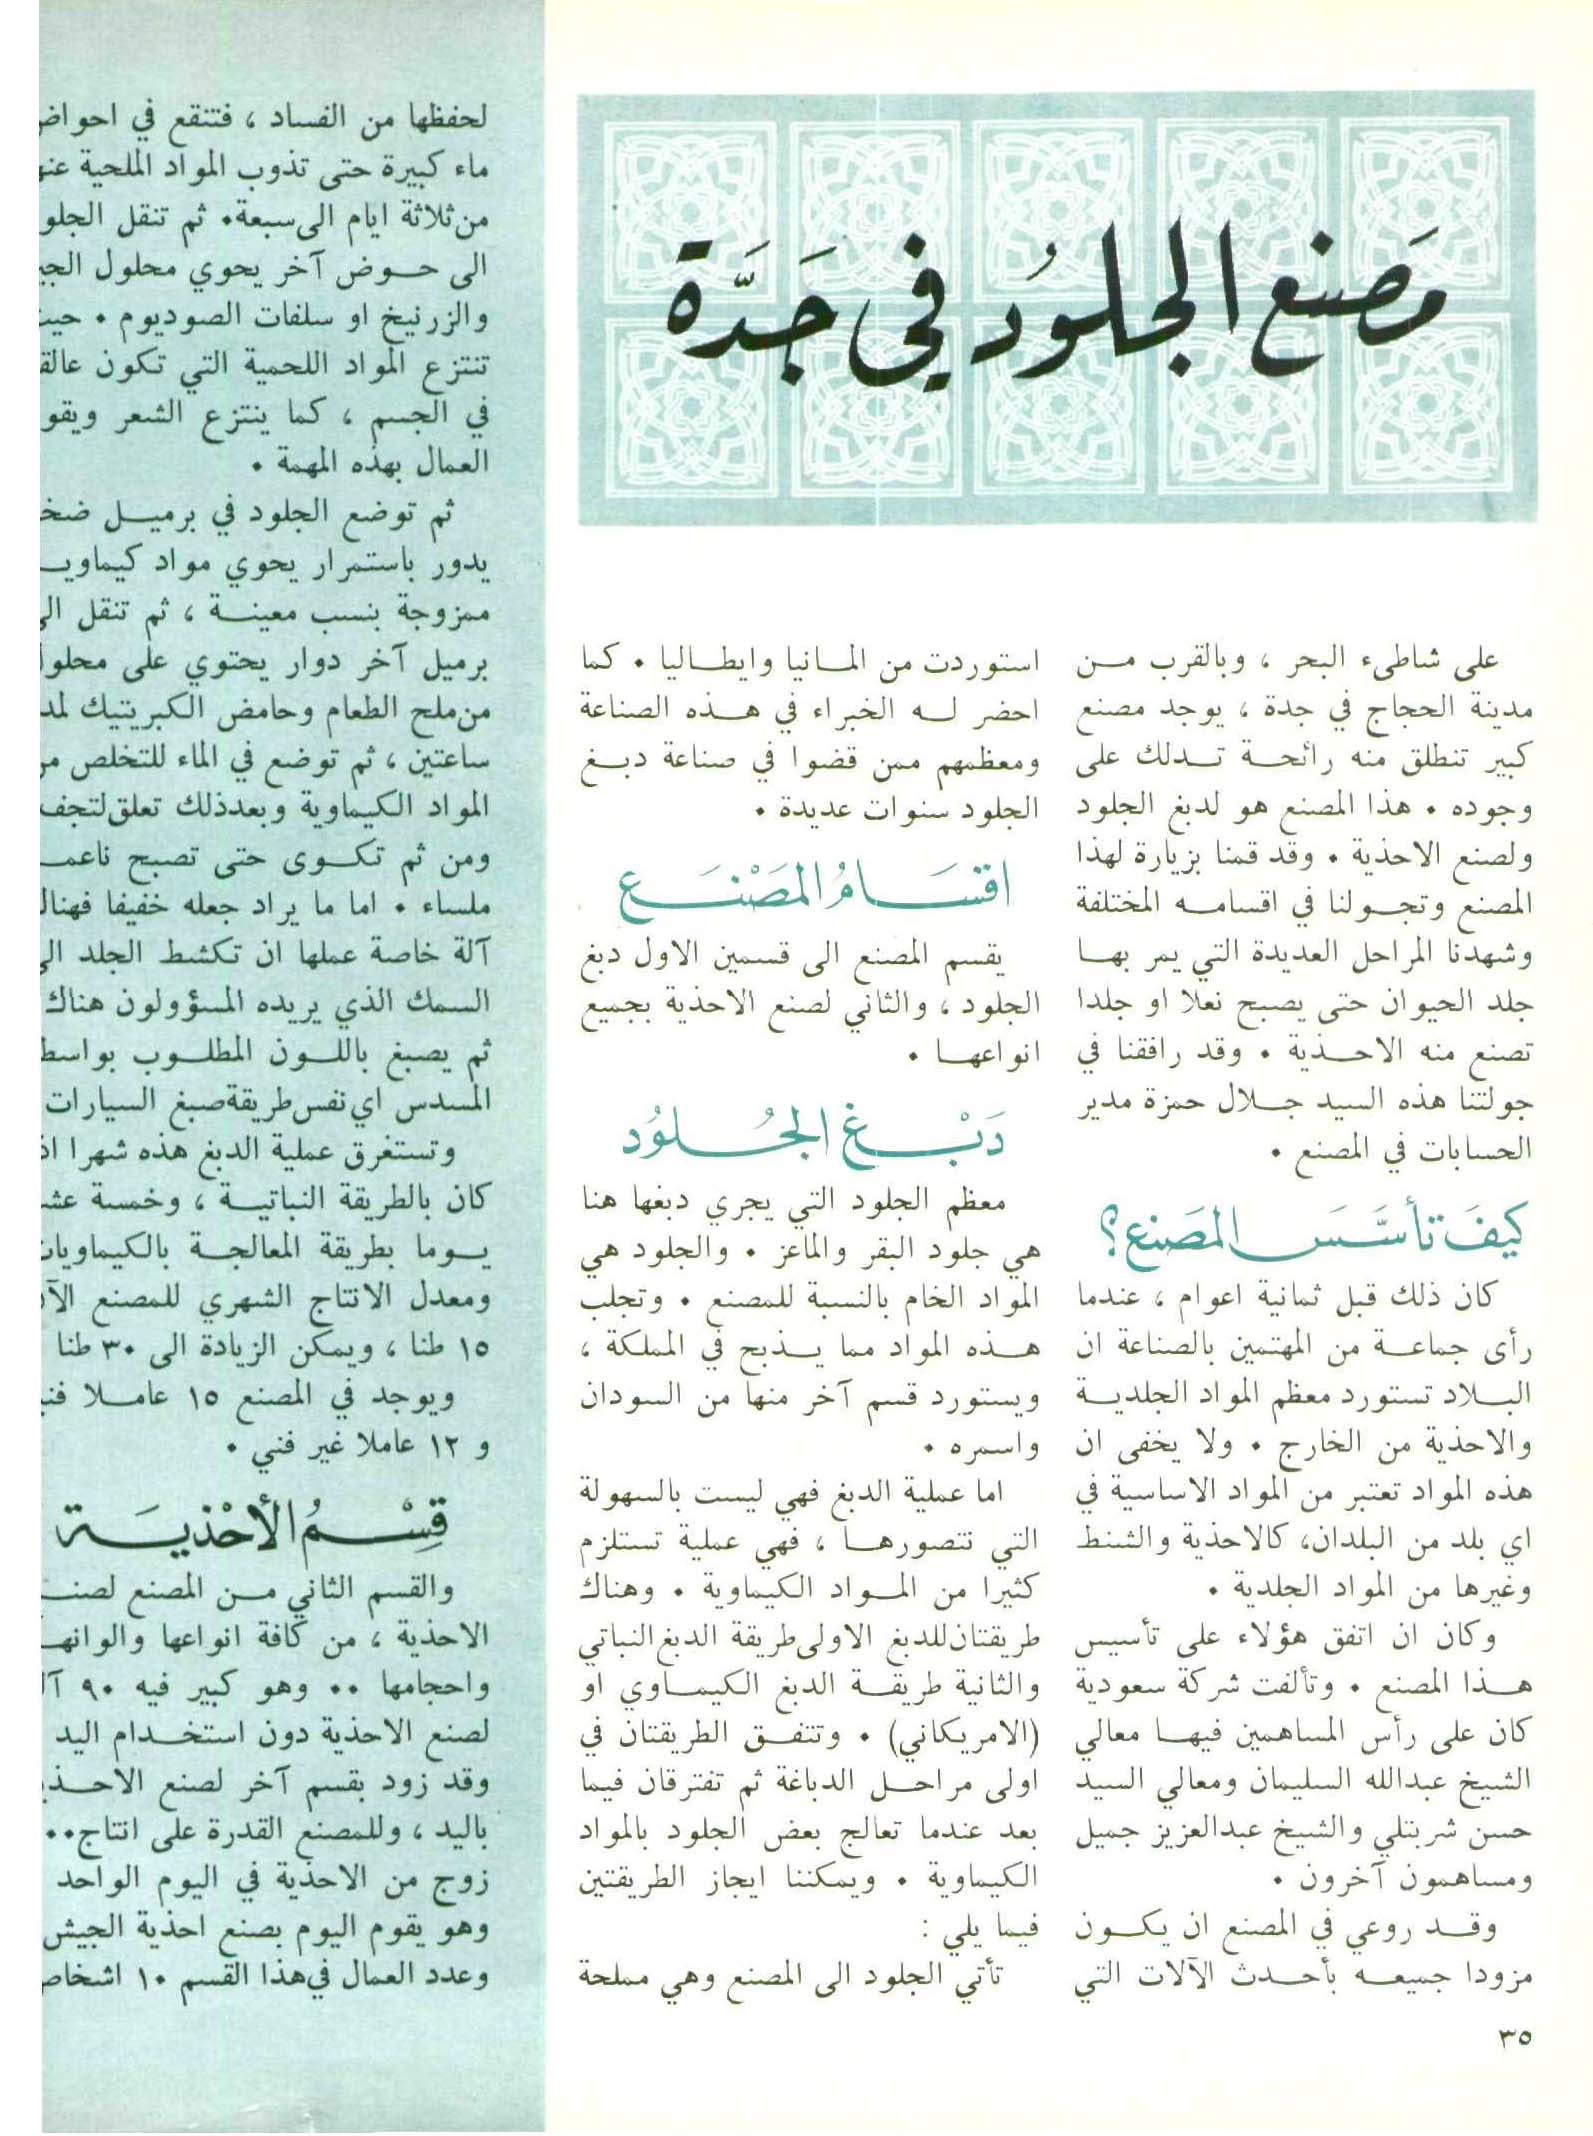 مصنع الجلود في جدة
على شاطىء البحر ، وبالقرب من
مدينة الحجاج في جدة ، يوجد مصنع
كبير تنطلق منه رائحة تدلك على
وجوده . هذا المصنع هو لدبغ الجلود
ولصنع الاحذية . وقد قمنا بزيارة لهذا
المصنع وتجولنا في اقسامه المختلفة
وشهدنا المراحل العديدة التي يمر بها
جلد الحيوان حتى يصبح نعلا او جلدا
تصنع منه الاحذية . وقد رافقنا في
جولتنا هذه السيد جلال حمزة مدير
الحسابات في المصنع .
كيف تأسس المصنع؟
كان ذلك قبل ثمانية اعوام ، عندما
رأى جماعة من المهتمين بالصناعة ان
البلاد تستورد معظم المواد الجلدية
والاحذية من الخارج . ولا يخفى ان
هذه المواد تعتبر من المواد الاساسية في
اي بلد من البلدان، كالاحذية والشنط
وغيرها من المواد الجلدية .
وكان ان اتفق هؤلاء على تأسيس
هذا المصنع . وتألفت شركة سعودية
كان على رأس المساهمين فيها معالي
الشيخ عبدالله السليمان ومعالي السيد
حسن شربتلي والشيخ عبدالعزيز جميل
ومساهمون آخرون .
وقد روعي في المصنع ان يكون
مزودا جميعه بأحدث الآلات التي
استوردت من المانيا وايطاليا . كما
احضر له الخبراء في هذه الصناعة
ومعظمهم ممن قضوا في صناعة دبغ
الجلود سنوات عديدة .
اقسام المصنع
يقسم المصنع الى قسمين الاول دبغ
الجلود ، والثاني لصنع الاحذية بجميع
انواعها .
دبغ الجلود
معظم الجلود التي يجري دبغها هنا
هي جلود البقر والماعز . والجلود هي
المواد الخام بالنسبة للمصنع . وتجلب
هذه المواد مما يذبح في المملكة ،
ويستورد قسم آخر منها من السودان
واسمره .
اما عملية الدبغ فهي ليست بالسهولة
التي نتصورها ، فهي عملية تستلزم
كثيرا من المواد الكيماوية . وهناك
طريقتان للدبغ الاولى طريقة الدبغ النباتي
والثانية طريقة الدبغ الكيماوي او
(الامريكاني) . وتتفق الطريقتان في
اولى مراحل الدباغة ثم تفترقان فيما
بعد عندما تعالج بعض الجلود بالمواد
الكيماوية . ويمكننا ايجاز الطريقتين
فيما يلي :
تأتي الجلود الى المصنع وهي مملحة
لحفظها من الفساد ، فتنقع في
ماء كبيرة حتى تذوب المواد الملحية
من ثلاثة ايام الى سبعة. ثم تنقل
الى حوض آخر يحوي محلول
والزرنيخ او سلفات الصوديوم .
تنتزع المواد اللحمية التي تكون
في الجسم ، كما ينتزع الشعر
العمال بهذه المهمة .
ثم توضع الجلود في برميل
يدور باستمرار يحوي مواد
ممزوجة بنسب معينة ، ثم تنقل
برميل آخر دوار يحتوي على
من ملح الطعام وحامض الكبريتيك
ساعتين ، ثم توضع في الماء للتخلص
المواد الكيماوية وبعد ذلك تعلق
ومن ثم تكوى حتى تصبح
ملساء . اما ما يراد جعله خفيفا
آلة خاصة عملها ان تكشط الجلد
السمك الذي يريده المسؤولون هناك
ثم يصبغ باللون المطلوب
المسدس اي نفس طريقة صبغ السيارات
وتستغرق عملية الدبغ هذه شهرا
كان بالطريقة النباتية ، وخمسة
يوما بطريقة المعالجة
ومعدل الانتاج الشهري للمصنع
١٥ طنا ، ويمكن الزيادة الى ٣٠ طنا
ويوجد في المصنع ١٥ عاملا
و ١٢ عاملا غير فني .
قسم الأحذية
والقسم الثاني من المصنع
الاحذية ، من كافة انواعها
واحجامها .. وهو كبير فيه ٩٠
لصنع الاحذية دون استخدام اليد
وقد زود بقسم آخر لصنع
باليد ، وللمصنع القدرة على انتاج
زوج من الاحذية في اليوم الواحد
وهو يقوم اليوم بصنع احذية الجيش
وعدد العمال في هذا القسم ١٠
٣٥